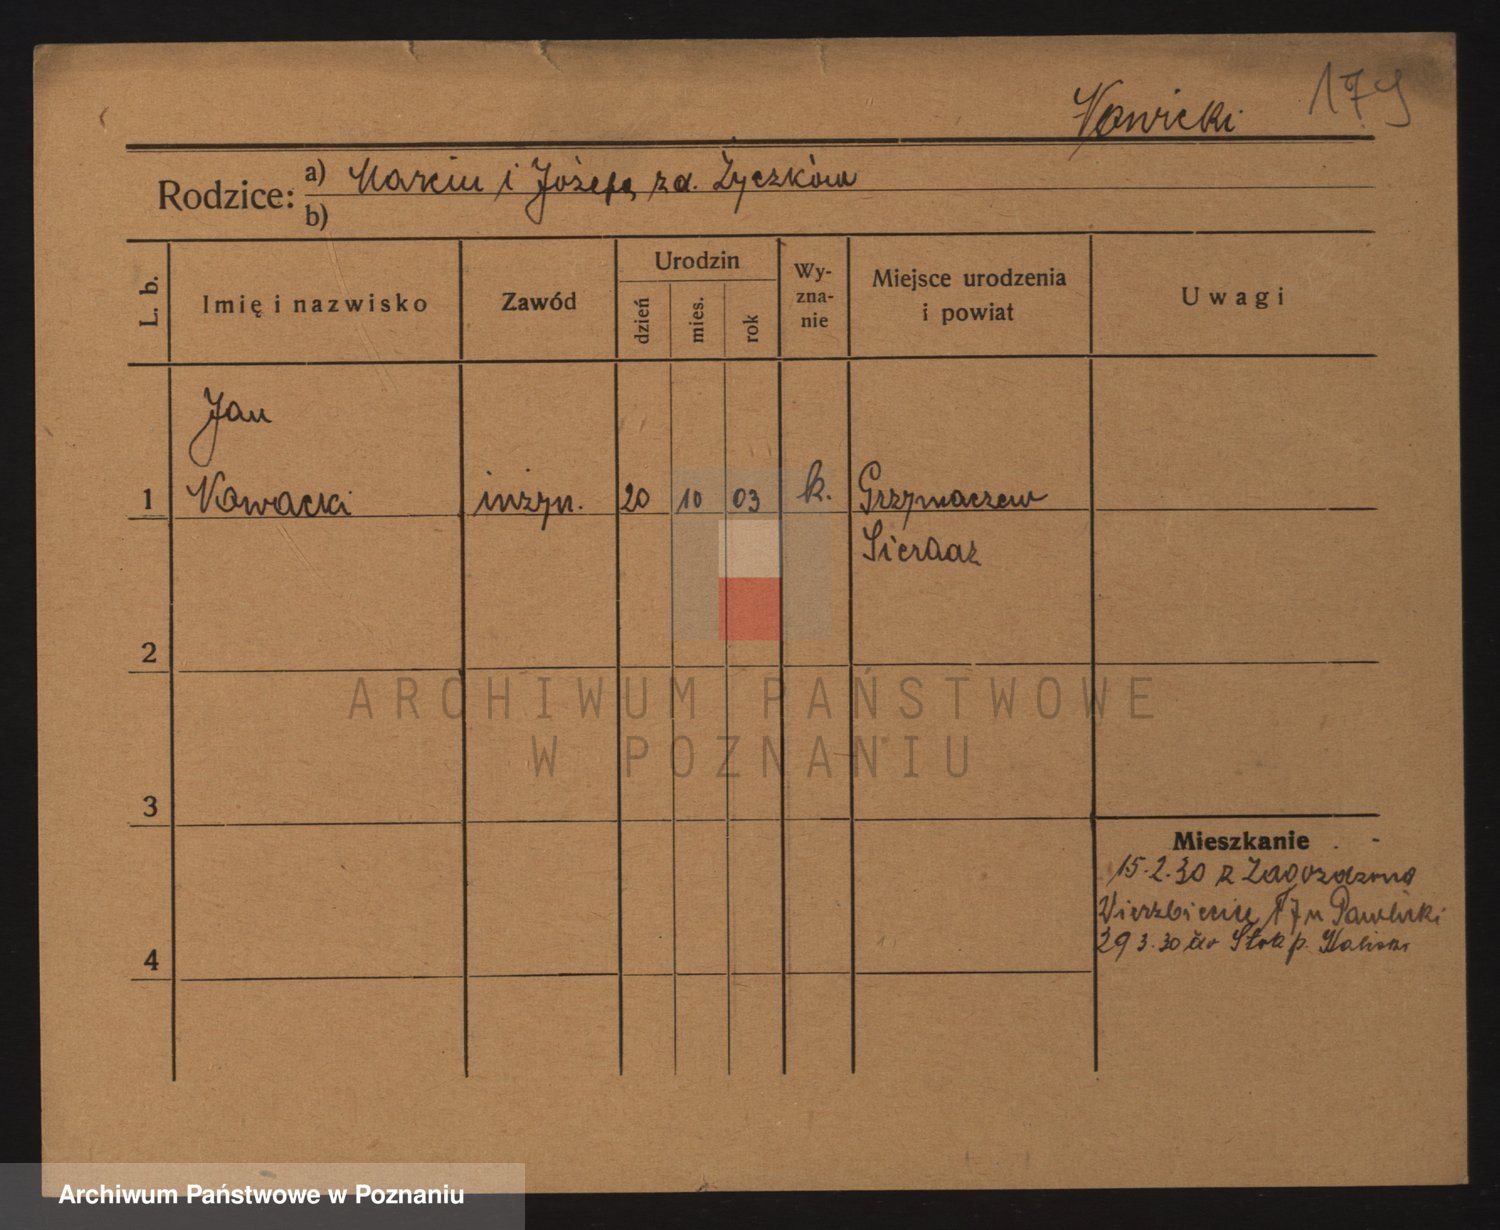 Nowicki 179
Rodzice: a) Marcin i Józefa zd. Życzków
b)
L. b. Imię i nazwisko Zawód Urodzin dzień mies. rok Wyzna-nie Miejsce urodzenia i powiat Uwagi
Jan
1 Nowacki inżyn. 20 10 03 k. Grzymaczew
Sieradz
2
ARCHIWUM PAŃSTWOWE
W POZNANIU
3
Mieszkanie
15.2.30 z Zagożdżona
Wierzbięcice 17 u Pawlicki
29 3.30 do p.
4
Archiwum Państwowe w Poznaniu